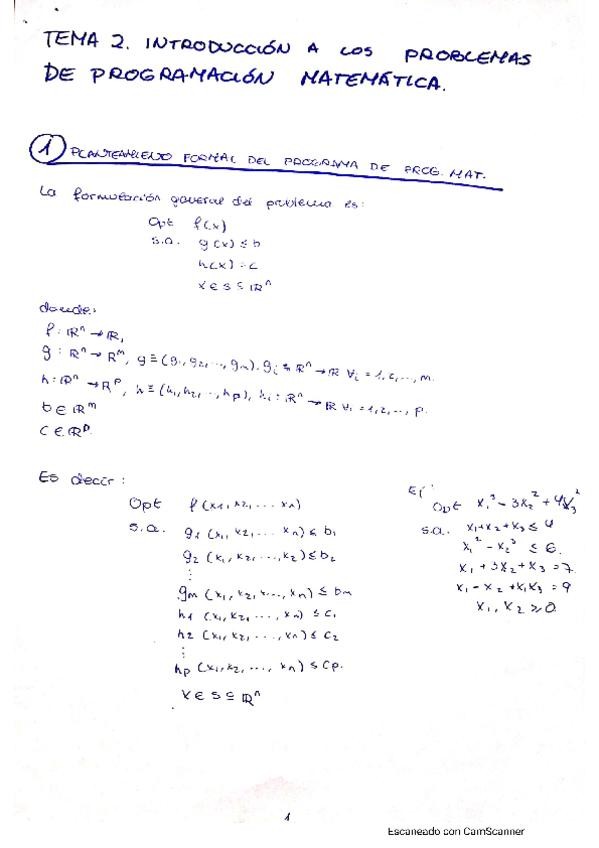 TEMA 2. INTRODUCCIÓN A LOS PROBLEMAS
DE PROGRAMACIÓN MATEMÁTICA.
1 PLANTEAMIENTO FORMAL DEL PROGRAMA DE PROG. MAT.
La formulación general del problema es:
Opt f(x)
s.a. g(x) ≤ b
h(x) = c
x ∈ S ⊆ ℝⁿ
donde:
f: ℝⁿ → ℝ,
g: ℝⁿ → ℝᵐ, g ≡ (g₁, g₂, ..., gₘ). gᵢ: ℝⁿ → ℝ ∀i = 1,2,..., m.
h: ℝⁿ → ℝᵖ, h ≡ (h₁, h₂, ..., hp), hᵢ: ℝⁿ → ℝ ∀i = 1,2,..., p.
b ∈ ℝᵐ
c ∈ ℝᵖ.
Es decir:
Opt f(x₁, x₂, ... xₙ)
s.a. g₁(x₁, x₂, ... xₙ) ≤ b₁
g₂(x₁, x₂, ..., x₂) ≤ b₂
⋮
gₘ(x₁, x₂, x..., xₙ) ≤ bₘ
h₁(x₁, x₂, ..., xₙ) ≤ c₁
h₂(x₁, x₂, ..., xₙ) ≤ c₂
⋮
hp(x₁, x₂, ..., xₙ) ≤ cp.
x ∈ S ⊆ ℝⁿ
Ej
Opt x₁³ - 3x₂² + 4x₃²
s.a. x₁ + x₂ + x₃ ≤ 4
x₁² - x₂³ ≤ 6.
x₁ + 3x₂ + x₃ = 7.
x₁ - x₂ + x₁x₃ = 9
x₁, x₂ ≥ 0.
1
Escaneado con CamScanner